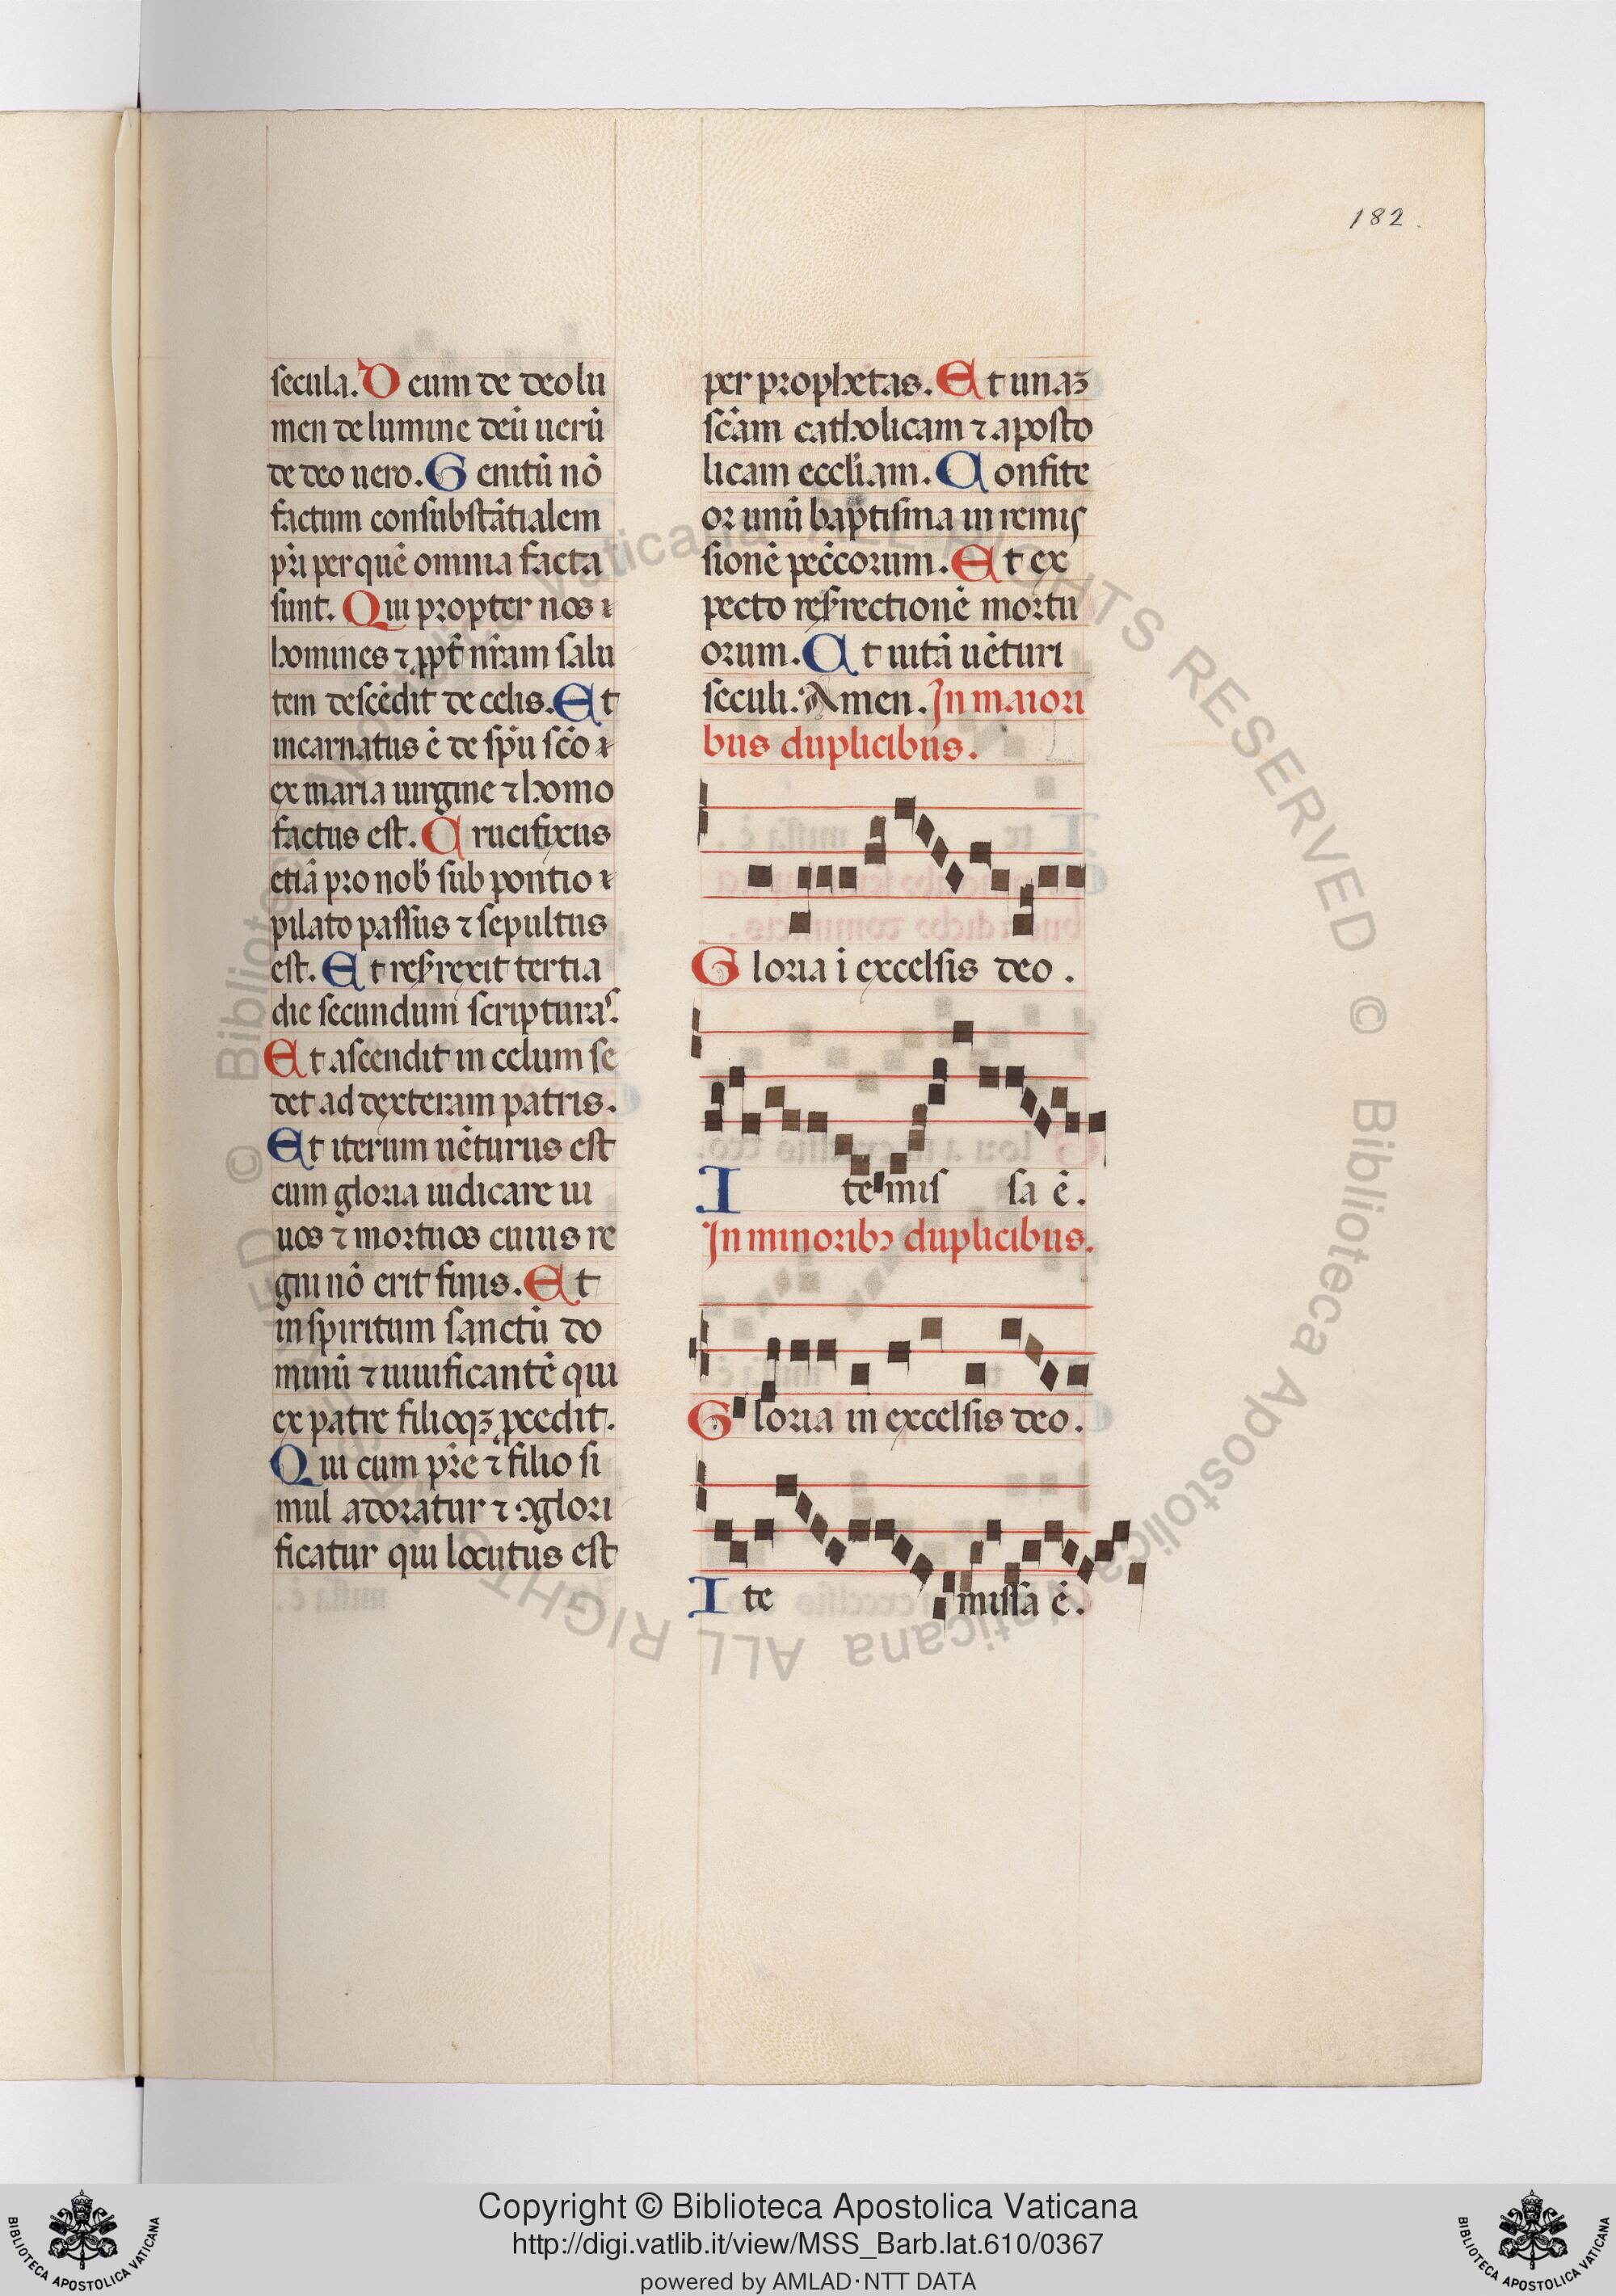 182.
secula. D eum de deo lu
men de lumine deū uerū
de deo uero. G enitū nō
factum consubstātialem
p̄ri per quē omnia facta
sunt. Q ui propter nos
homines ⁊ ꝓpt̄ nr̄am salu
tem descēdit de celis. E t
incarnatus ē de sp̄u sc̄o
ex maria uirgine ⁊ homo
factus est. C rucifixus
etiā pro nob̄ sub pontio
pilato passus ⁊ sepultus
est. E t resr̄rexit tertia
die secundum scripturas.
E t ascendit in celum se
det ad dexteram patris.
E t iterum uēturus est
cum gloria iudicare ui
uos ⁊ mortuos cuius re
gni nō erit finis. E t
in spiritum sanctū do
minū ⁊ uiuificantē qui
ex patre filioqꝫ ꝓcedit.
Q ui cum p̄re ⁊ filio si
mul adoratur ⁊ ꝯglori
ficatur qui locutus est
per prophetas. E t unaꝫ
sc̄am catholicam ⁊ aposto
licam eccl̄iam. C onfite
or unū baptisma in remis
sionē pecc̄orum. E t ex
pecto resr̄rectionē mortu
orum. E t uitā uēturi
seculi. Amen. In maiori
bus duplicibus.
G loria ī excelsis deo.
I te mis sa ē.
In minoribꝰ duplicibus.
G loria in excelsis deo.
I te missa ē.
Copyright © Biblioteca Apostolica Vaticana
http://digi.vatlib.it/view/MSS_Barb.lat.610/0367
powered by AMLAD·NTT DATA
BIBLIOTECA APOSTOLICA VATICANA
BIBLIOTECA APOSTOLICA VATICANA
© Biblioteca Apostolica Vaticana ALL RIGHTS RESERVED
© Biblioteca Apostolica Vaticana ALL RIGHTS RESERVED